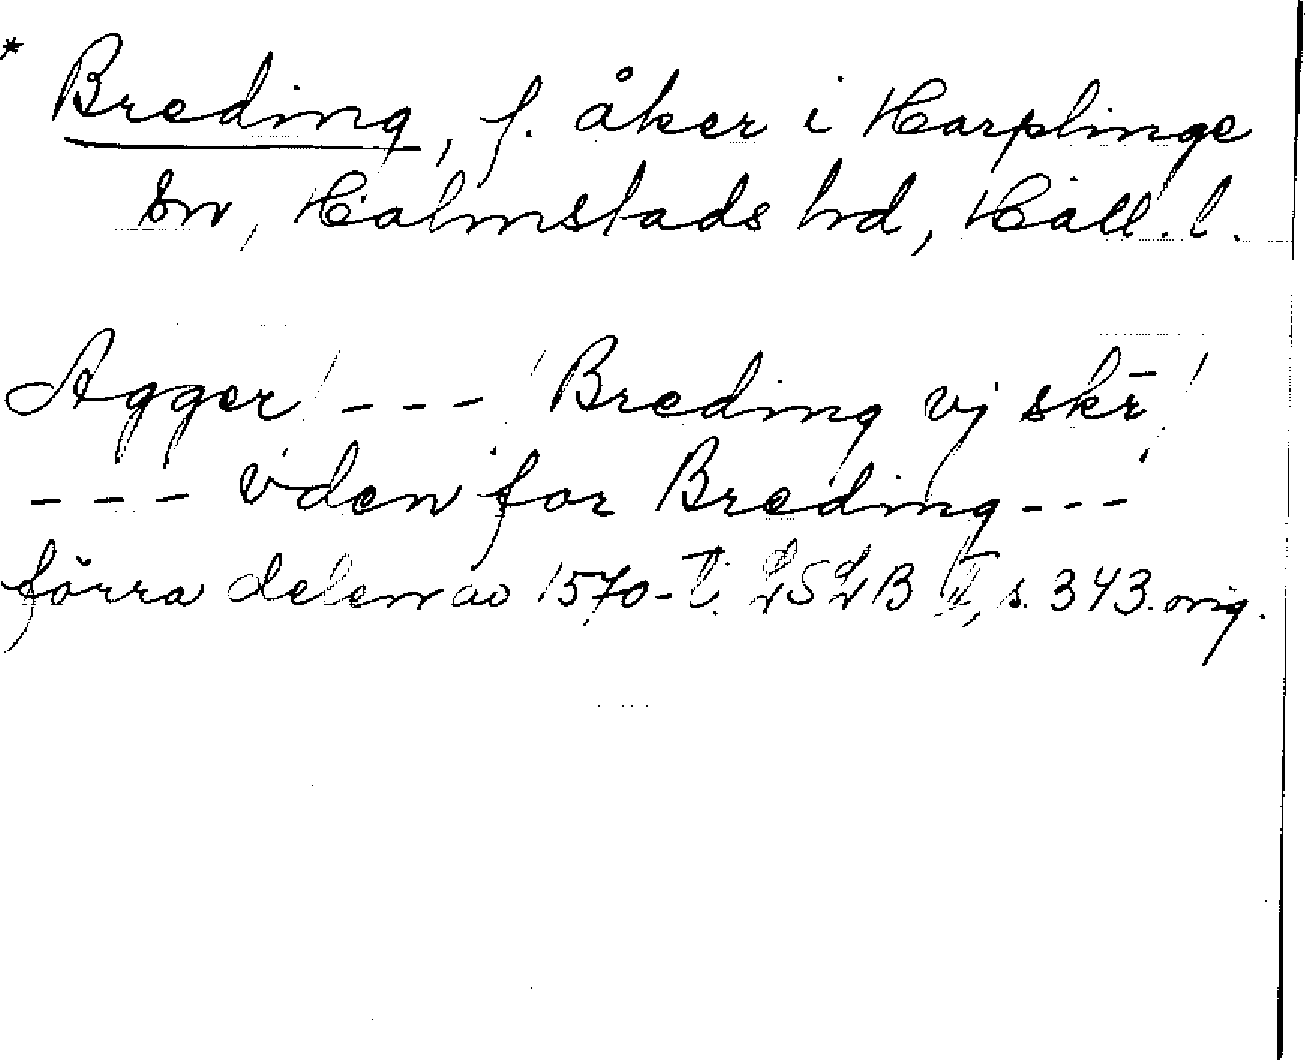 * Breding, f. åker i Harplinge
sn, Halmstads hd, Hall. l.
Agger / - - - / Breding vj skr̄ /
- - - vden for Breding - - -
förra delen av 1570-t. LSLB II, s. 343. orig.